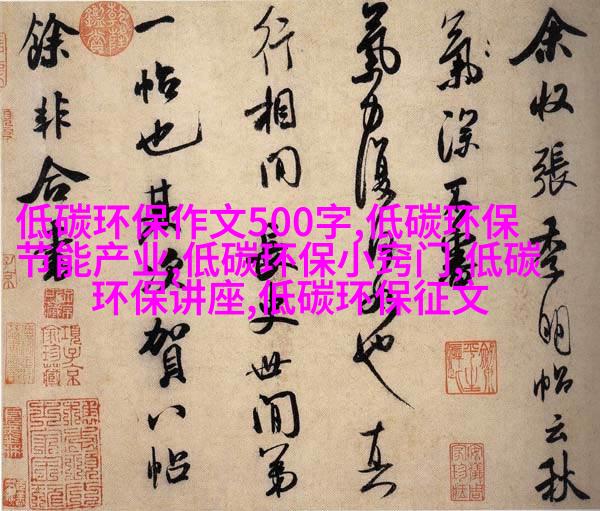 低碳环保作文500字,低碳环保
节能产业,低碳环保小窍门,低碳
环保讲座,低碳环保征文
余收張季明帖云秋
氣深不審
氣力復何如也真
行相間長史世間第
一帖也其次賀八帖
餘非合書